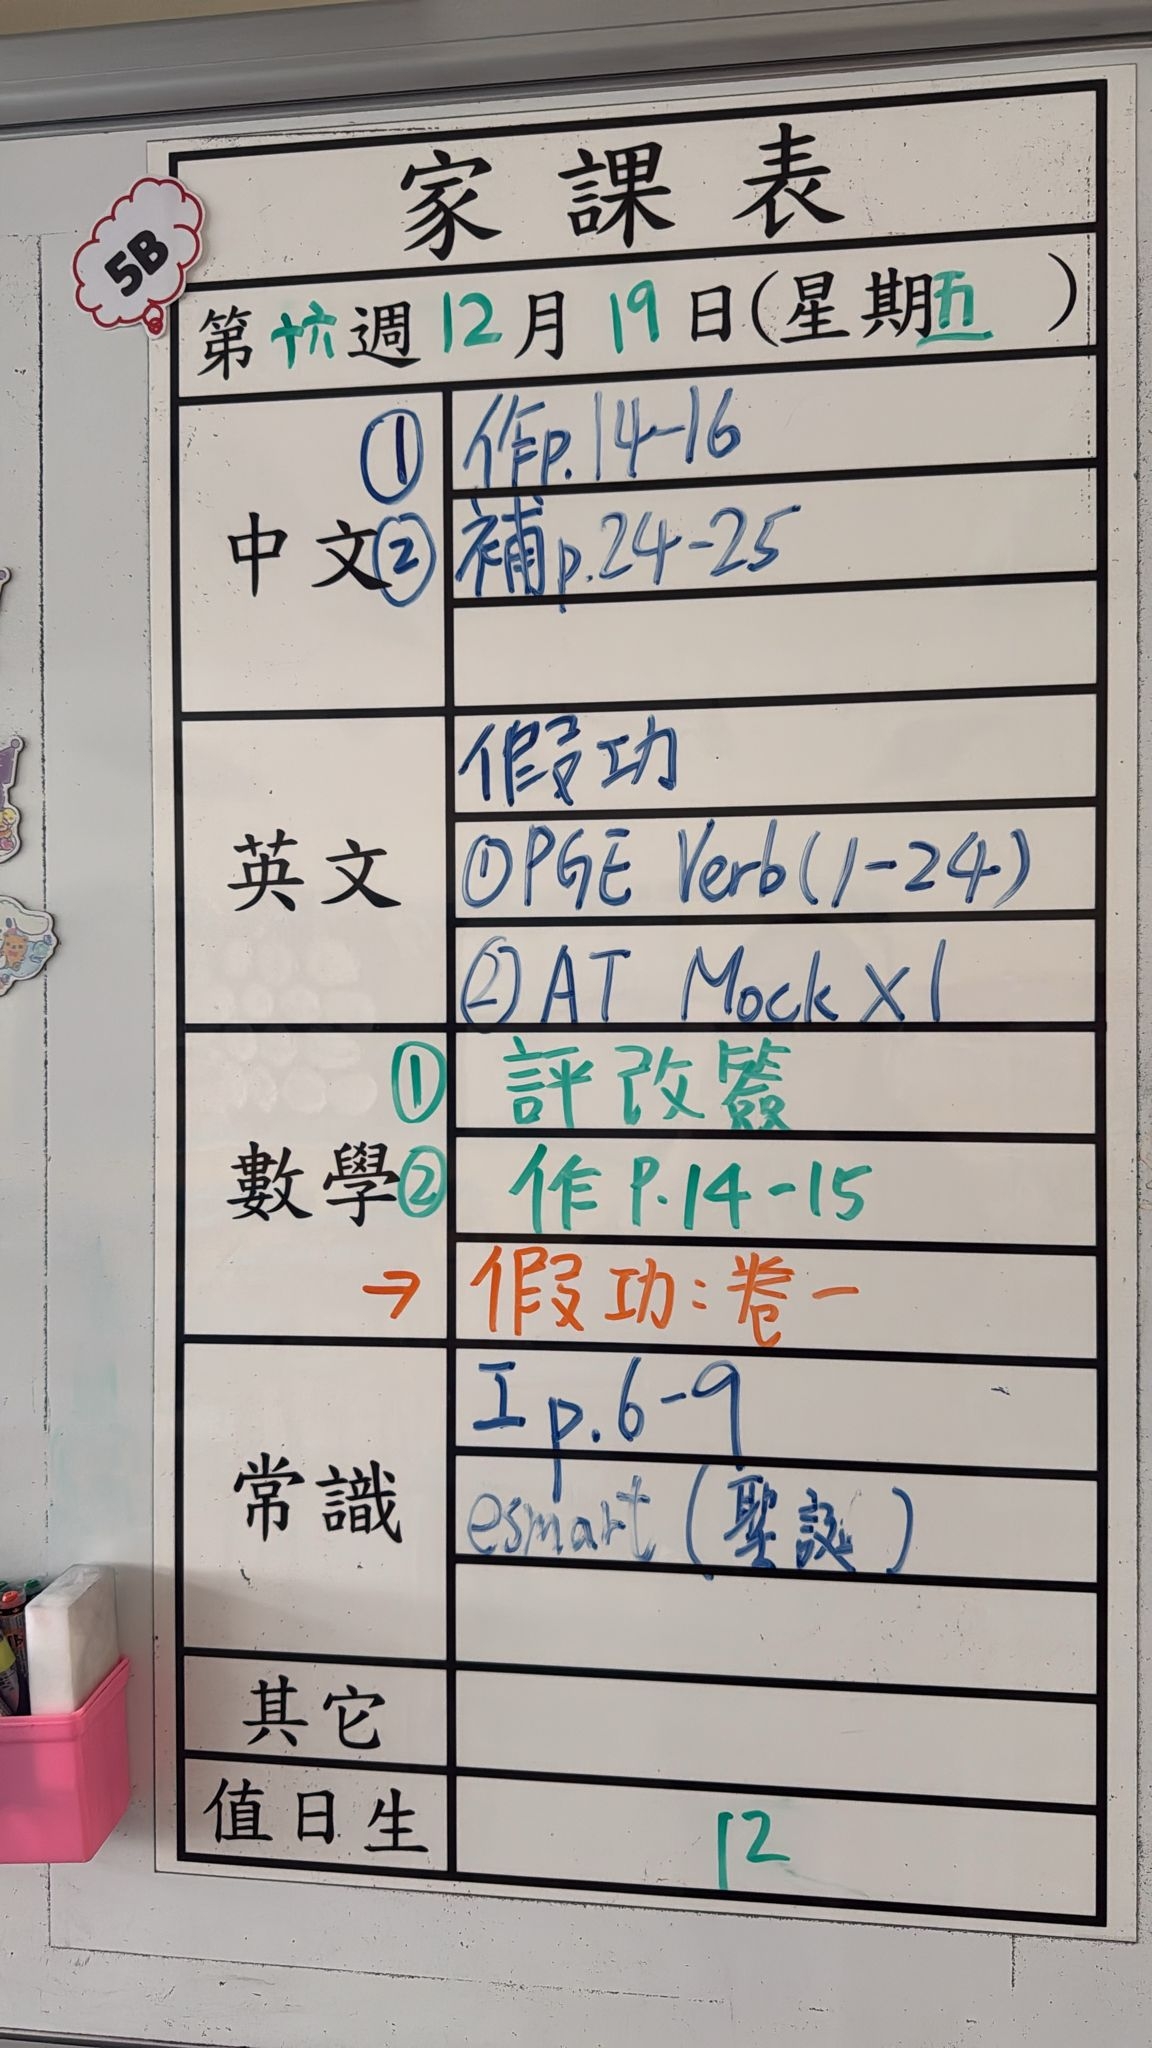 家課表
5B
第十六週12月19日(星期五)
中文
① 作p.14-16
② 補p.24-25
英文
假功
①PGE Verb(1-24)
②AT Mock x1
數學
① 評改簽
② 作P.14-15
→ 假功:卷一
常識
工p.6-9
esmart(聖誕)
其它
值日生
12